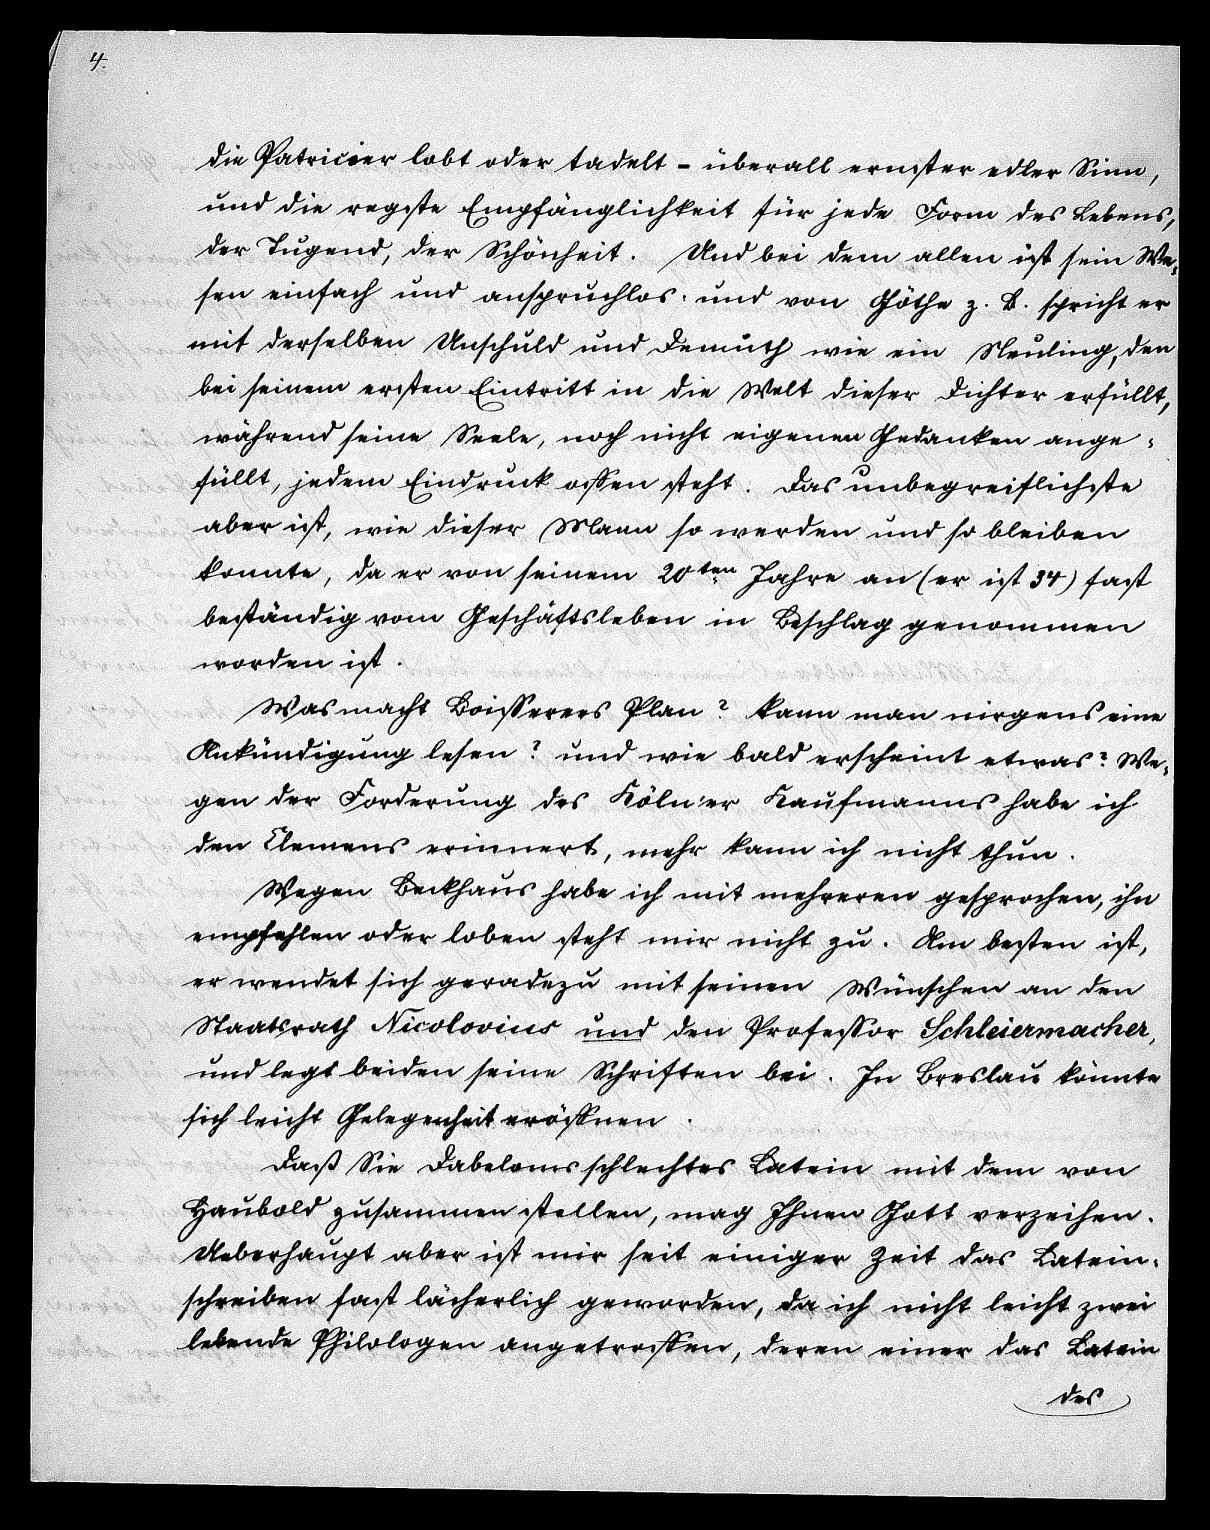 4.
die Patricier lobt oder tadelt - überall ernster edler Sinn,
und die regste Empfänglichkeit für jede Form des Lebens,
der Tugend, der Schönheit. Und bei dem allen ist sein We-
sen einfach und anspruchlos. und von Göthe z. B. spricht er
mit derselben Unschuld und Demuth wie ein Neuling, den
bei seinem ersten Eintritt in die Welt dieser Dichter erfüllt,
während seine Seele, noch nicht eigenen Gedanken ange-
füllt, jedem Eindruck offen steht. Das unbegreiflichste
aber ist, wie dieser Mann so werden und so bleiben
konnte, da er von seinem 20ten Jahre an (er ist 34) fast
beständig vom Geschäftsleben in Beschlag genommen
worden ist.
Was macht Boisserees Plan? kann man nirgens eine
Ankündigung lesen? und wie bald erscheint etwas? We-
gen der Forderung des Köln'er Kaufmanns habe ich
den Clemens erinnert, mehr kann ich nicht thun.
Wegen Beckhaus habe ich mit mehreren gesprochen, ihn
empfehlen oder loben steht mir nicht zu. Am besten ist,
er wendet sich geradezu mit seinen Wünschen an den
Staatsrath Nicolovius und den Professor Schleiermacher,
und legt beiden seine Schriften bei. In Breslau könnte
sich leicht Gelegenheit eröffnen.
Daß Sie Dabelows schlechtes Latein mit dem von
Haubold zusammen stellen, mag Ihnen Gott verzeihen.
Ueberhaupt aber ist mir seit einiger Zeit das Latein-
schreiben fast lächerlich geworden, da ich nicht leicht zwei
lebende Philologen angetroffen, deren einer das Latein
des